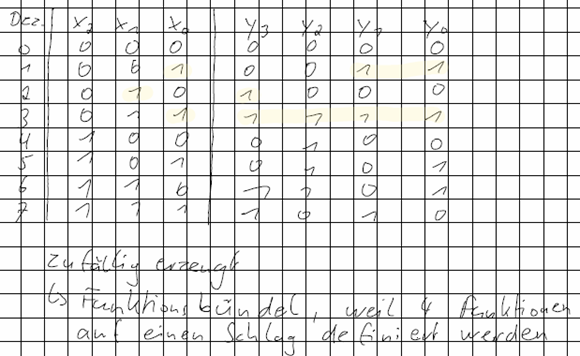 Dez. X2 X1 X0 Y3 Y2 Y1 Y0
0 0 0 0 0 0 0 0
1 0 0 1 0 0 1 1
2 0 1 0 1 0 0 0
3 0 1 1 1 1 1 1
4 1 0 0 0 1 0 0
5 1 0 1 0 1 0 1
6 1 1 0 1 1 0 1
7 1 1 1 1 0 1 0
zufällig erzeugt
↳ Funktionsbündel, weil 4 Funktionen
auf einen Schlag definiert werden